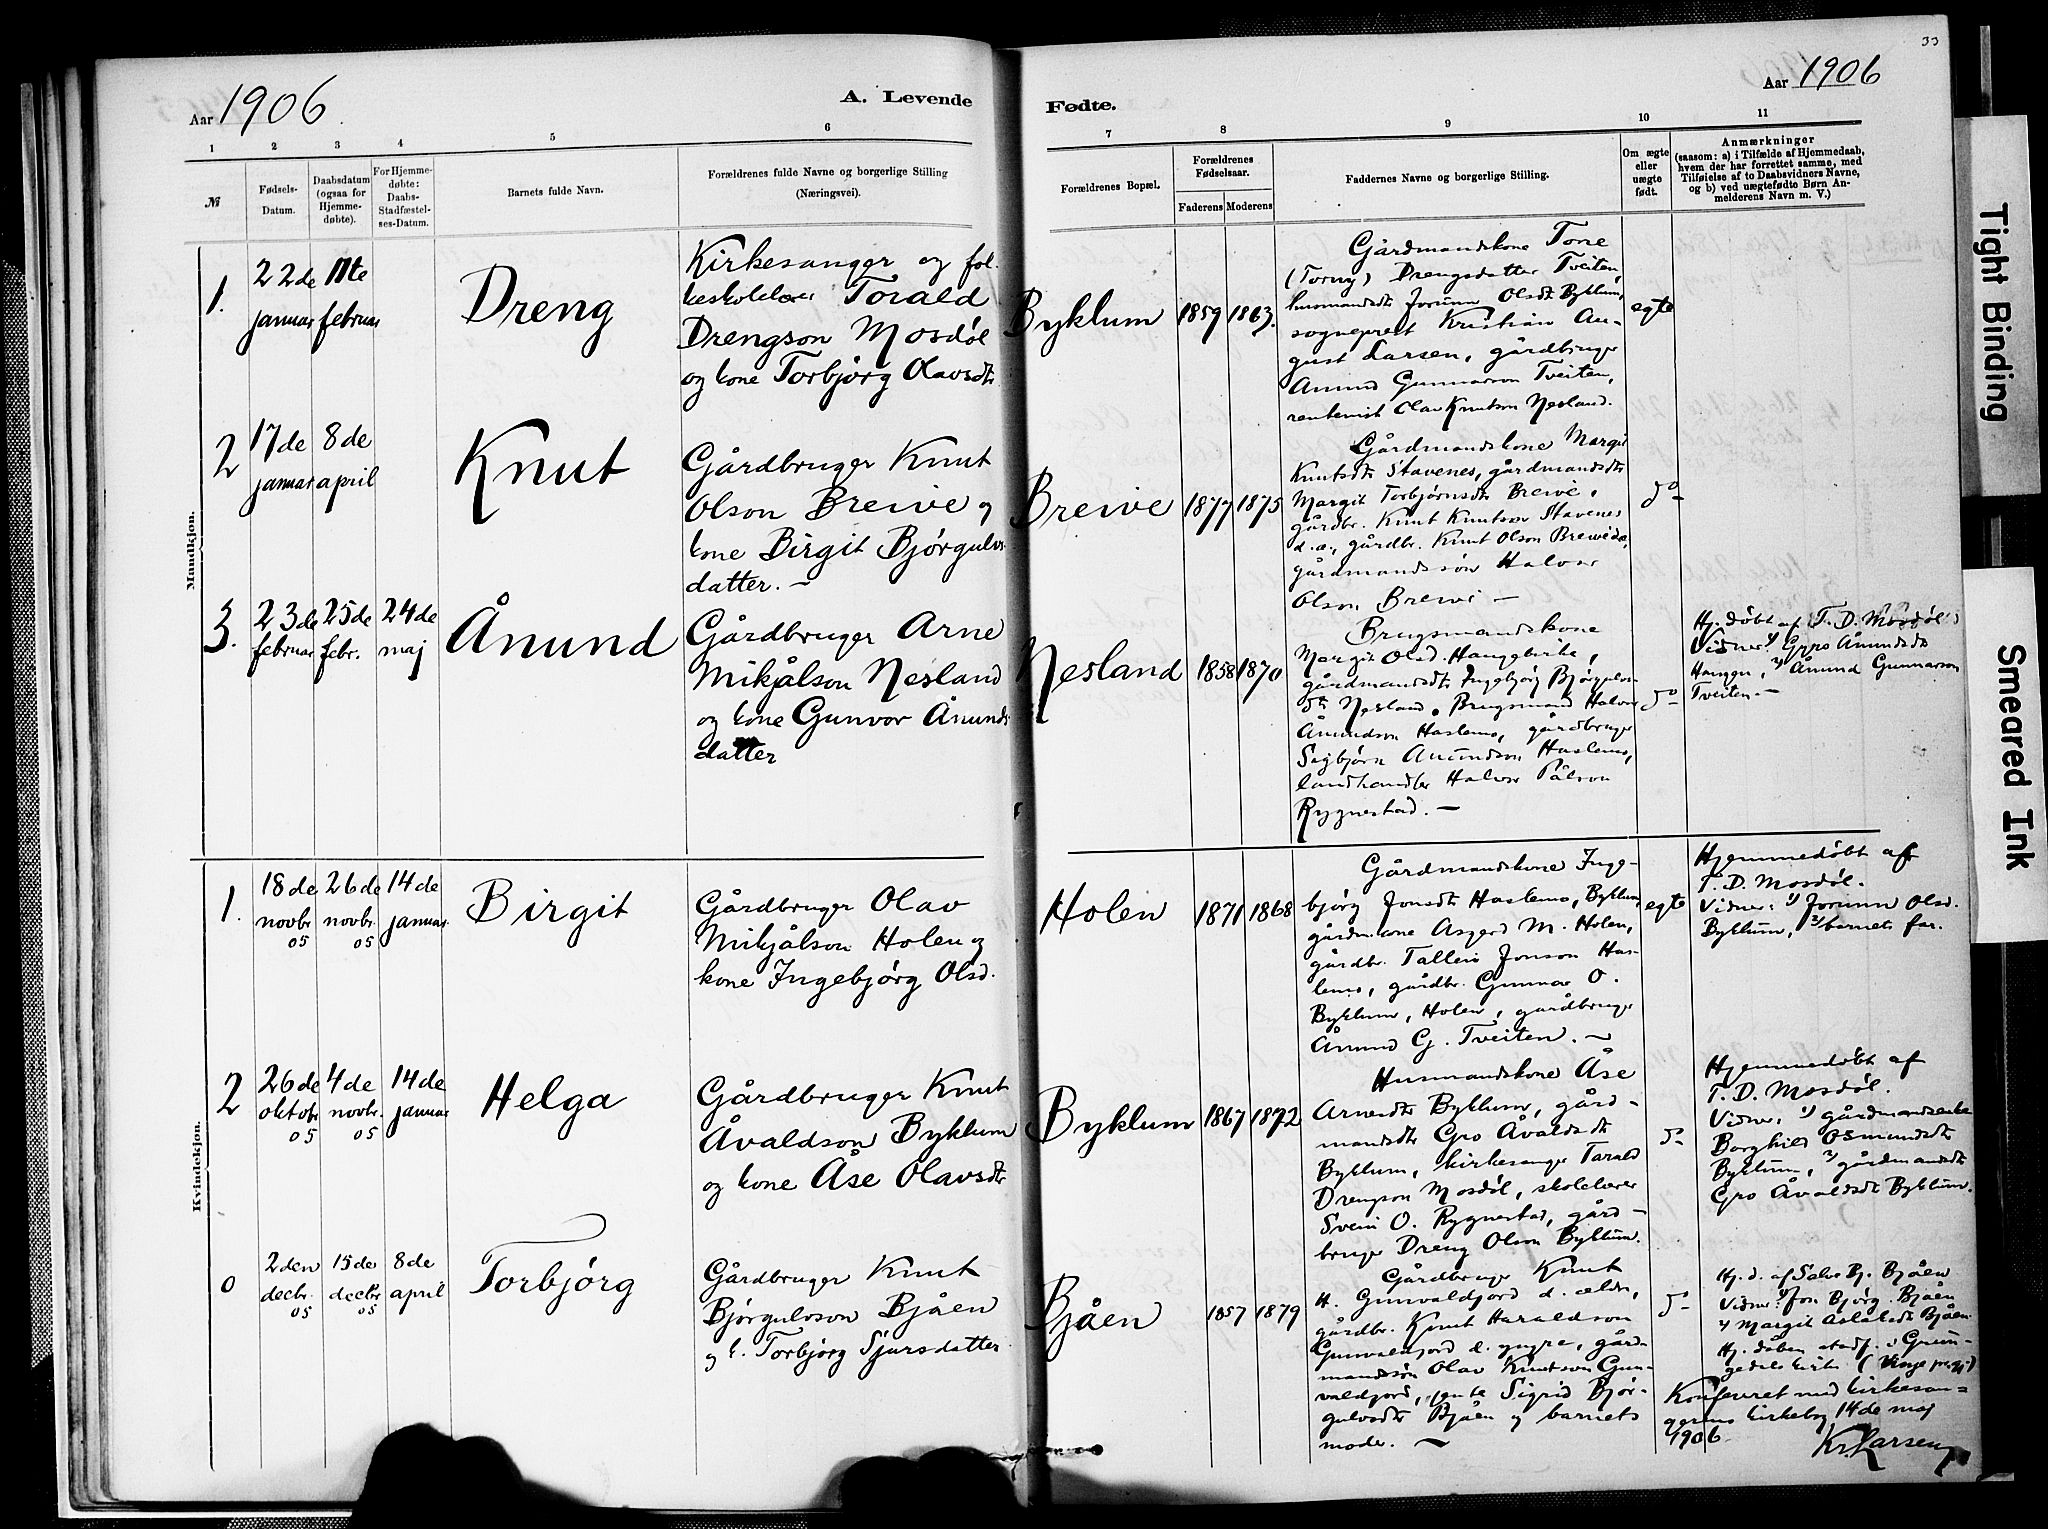 33
Aar 1906
A. Levende
Fødte.
Aar 1906
1 2 3 4 5 6 7 8 9 10 11
№
Fødsels-
Datum.
Daabsdatum
(ogsaa for
Hjemme-
døbte).
For Hjemme-
døbte:
Daabs-
Stadfæstel-
ses-Datum.
Barnets fulde Navn.
Forældrenes fulde Navne og borgerlige Stilling
(Næringsvei).
Forældrenes Bopæl.
Forældrenes
Fødselsaar.
Faderens Moderens
Faddernes Navne og borgerlige Stilling.
Om ægte
eller
uægte
født.
Anmærkninger
(saasom: a) i Tilfælde af Hjemmedaab,
hvem der har forrettet samme, med
Tilføielse af to Daabsvidners Navne,
og b) ved uægtefødte Børn An-
melderens Navn m. V.)
Mandkjøn.
1.
22de
januar
11te
februar
Dreng
Kirkesanger og fol-
keskolelærer Torald
Drengson Mosdøl
og kone Torbjørg Olavsdt
Byklum
1859
1863.
Gårdmandskone Tone
(Torny) Drengsdatter Tveiten,
husmandsdt Jorunn Olsdt Byklum,
sogneprest Kristian Au-
gust Larsen, gårdbruger
Anund Gunnarson Tveiten,
Olav Knutson Nesland.
egte
2
17de
januar
8de
april
Knut
Gårdbruger Knut
Olson Breive og
kone Birgit Bjørgulvs-
datter. —
Breive
1877
1875
Gårdmandskone Margit
Knutsdt Stavenes, gårdmandsdt
Margit Torbjørnsdt Breive,
gårdbr. Knut Knutson Stavenes
d.æ., gårdbr. Knut Olson Breive
gårdmandssøn Halvor
Olson Breive —
do
3.
23de
februar
25de
febr.
24de
maj
Ånund
Gårdbruger Arne
Mikjålson Nesland
og kone Gunvor Ånunds
datter
Nesland
1858
1870
Brugsmandskone
Margit Olsd. Haugekirke,
gårdmandsdt Ingebjørg Bjørgulvs-
dt Nesland, Brugsmand Halvor
Ånundson Haslemo, gårdbruger
Sigbjørn Anundson Haslemo,
landhandler Halvor Pålson
Rygnestad. —
do
Hj. døbt af T. D. Mosdøl
Vidner 1) Gyro Ånundsdt
Haugen, 2) Ånund Gunnarson
Tveiten —
Kvindekjøn.
1.
18de
novbr
05
26de
novbr.
05
14de
januar
Birgit
Gårdbruger Olav
Mikjålson Holen og
kone Ingebjørg Olsd.
Holen
1871
1868
Gårdmandskone Inge-
bjørg Jonsdt Haslemo, Byklum
gårdmkone Asgerd M. Holen,
gårdbr. Talleiv Jonson Has-
lemo, gårdbr. Gunnar O.
Byklum, Holen, gårdbruger
Ånund G. Tveiten. —
egte
Hjemmedøbt af
T. D. Mosdøl.
Vidner: 1) Jorunn Olsd.
Byklum, 2) barnets far.
2
26de
oktobr
05
4de
novbr.
05
14de
januar
Helga
Gårdbruger Knut
Åvaldson Byklum
og kone Åse Olavsdt
Byklum
1867
1872
Husmandskone Åse
Arnesdt Byklum, gård-
mandsdt Gro Åvaldsdt
Byklum, kirkesanger Tarald
Drengson Mosdøl, skolelærer
Svein O. Rygnestad, gård-
bruger Dreng Olson Byklum.
do
Hjemmedøbt af
T. D. Mosdøl.
Vidner, 1) gårdmandsenke
Borghild Osmundsdt
Byklum, 2) gårdmandsdt
Gro Åvaldsdt Byklum.
0
2den
decbr.
05
15de
decbr
05
8de
april
Torbjørg
Gårdbruger Knut
Bjørgulvson Bjåen
og k. Torbjørg Sjursdatter
Bjåen
1857
1879
Gårdbruger Knut
H. Gunvaldjord d. ældre,
gårdbr. Knut Haraldson
Gunvaldjord d. yngre, gård-
mandssøn Olav Knutson Gun-
valdjord, jente Sigrid Bjør-
gulvsdt Bjåen og barnets
moder. —
do
Hj. d. af Salve Bj. Bjåen
Vidner: 1) Jon Bjørg. Bjåen
2) Margit Aslaksdt Bjåen.
Hj. dåben stadf. i Grun-
gedals kirke (Vinje pregj.)
Konfereret med kirkesan-
gerens kirkebog 14de maj
1906.
Kr. Larsen
Tight Binding
Smeared Ink